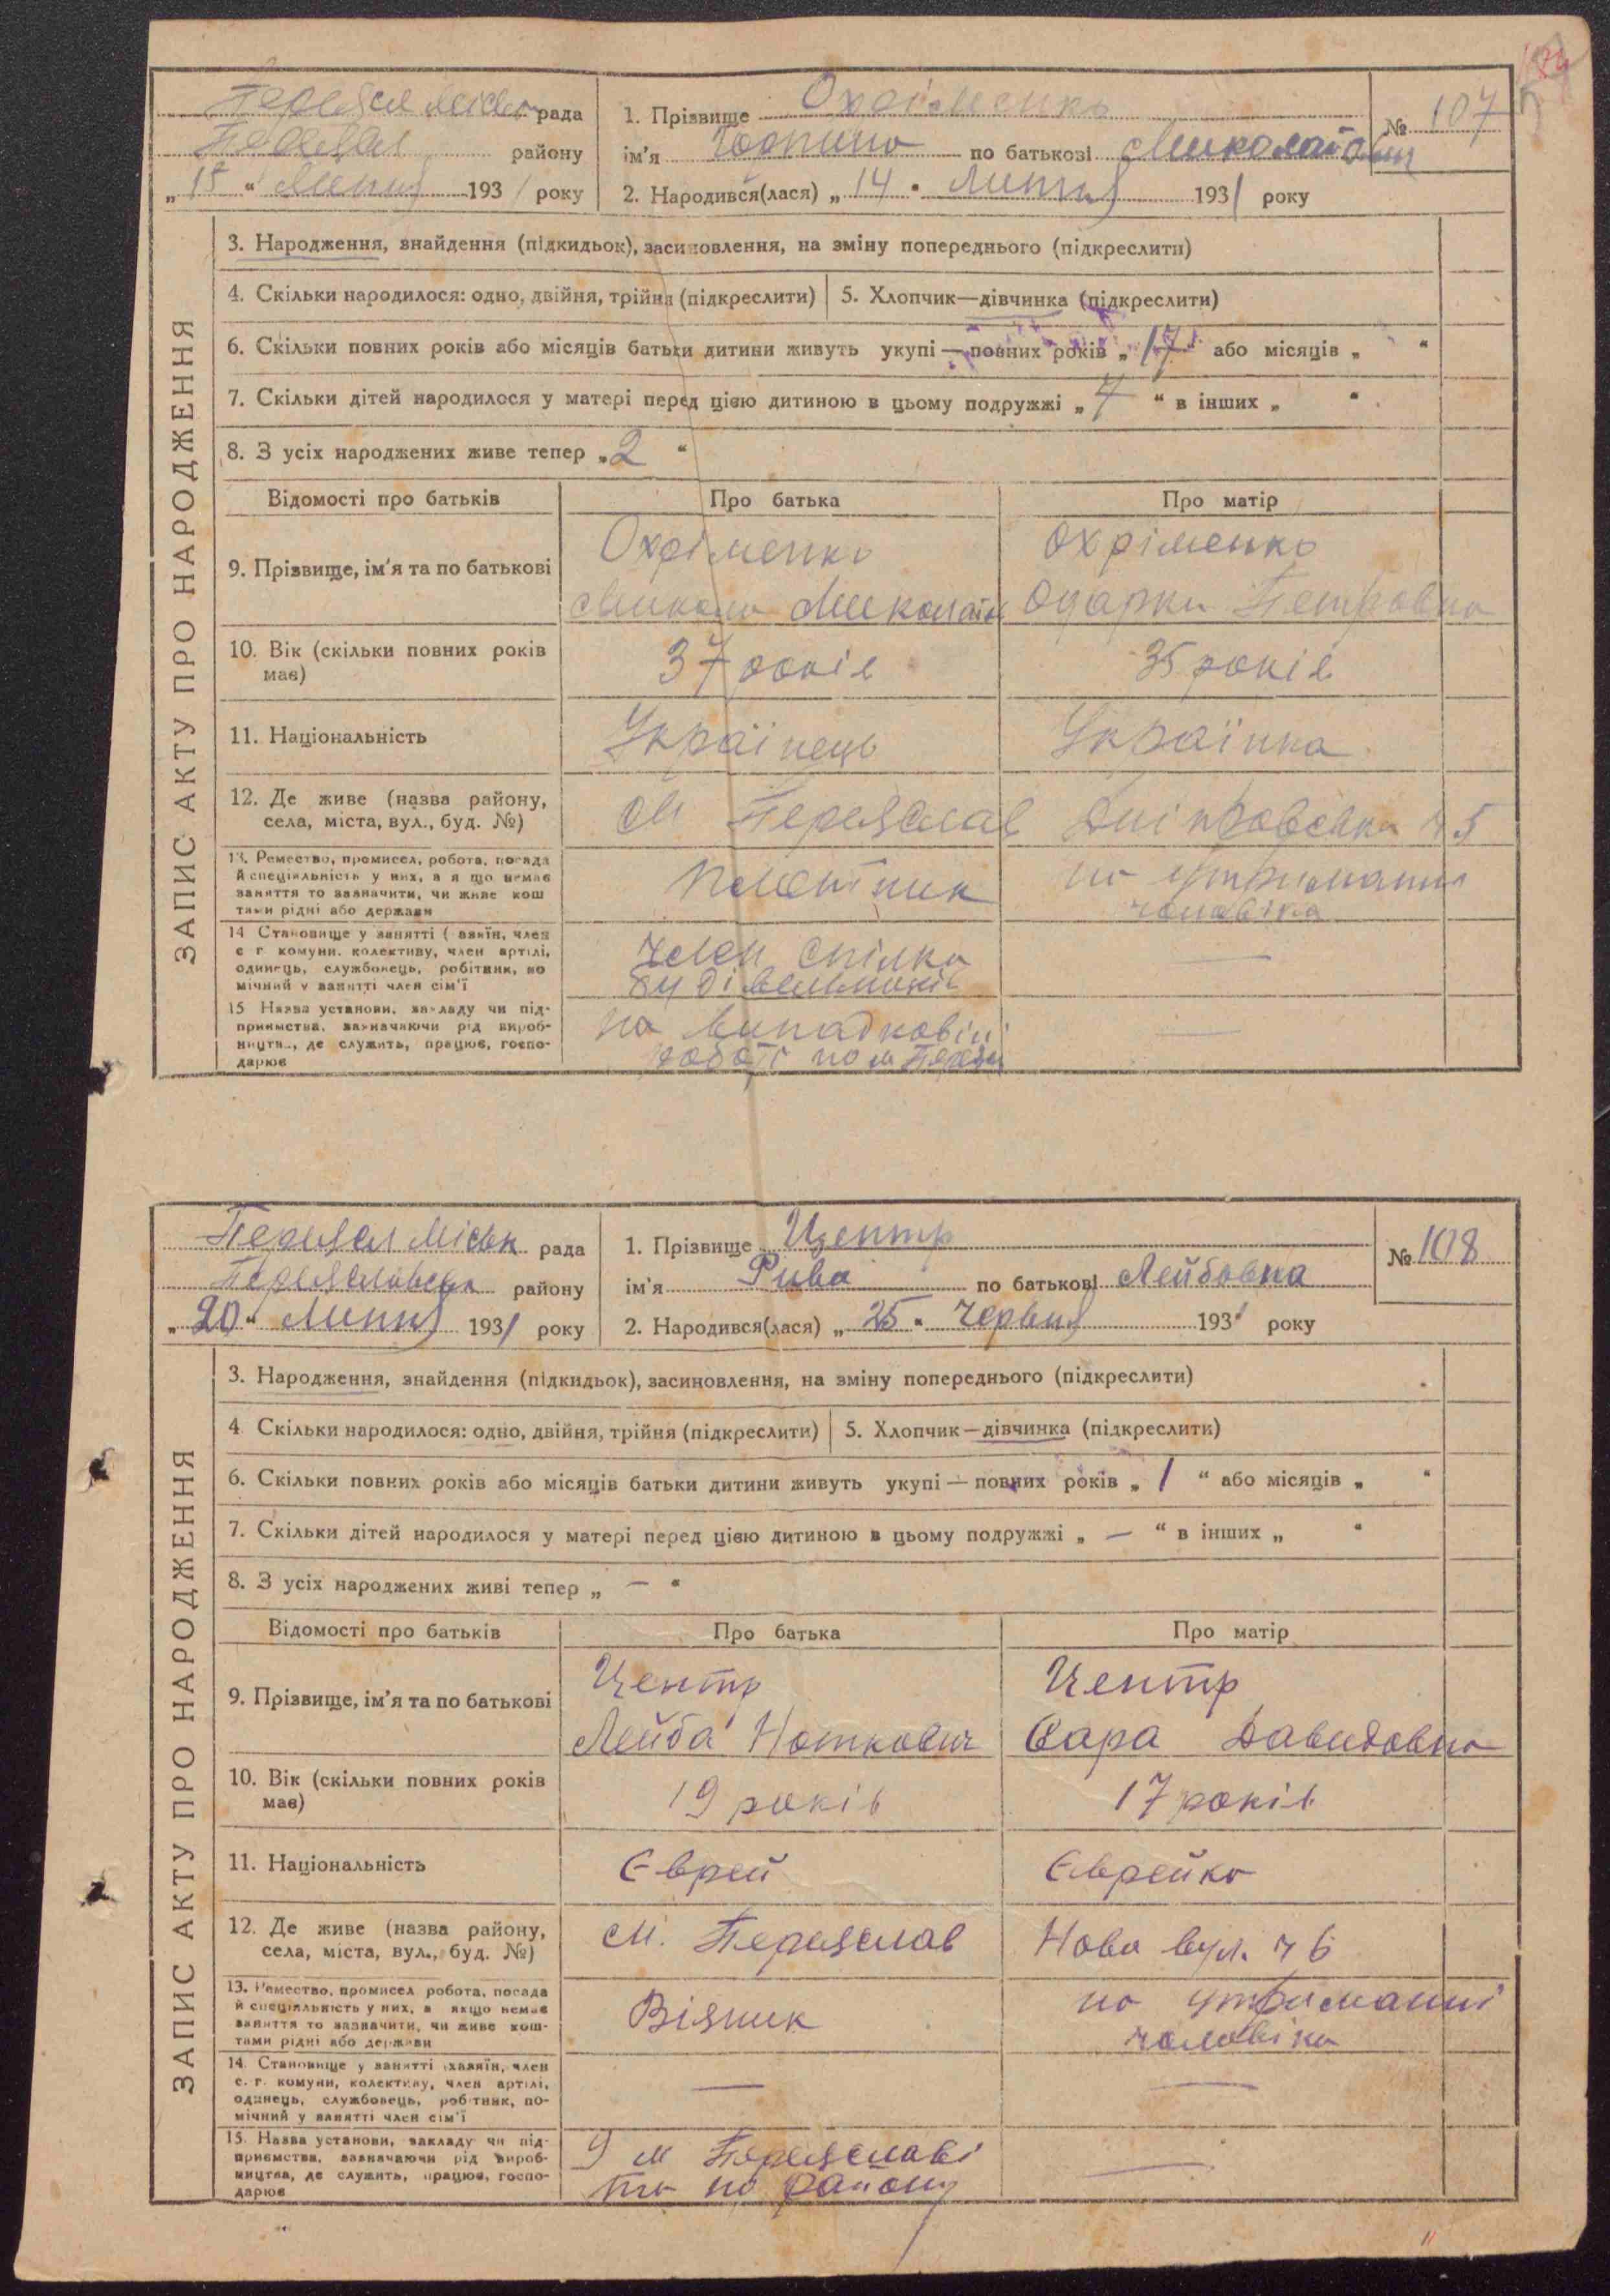 Переясл міськ рада
району
„ “ Липня 1931 року
1. Прізвище Охріменко
ім'я по батькові Миколаївн
№ 107
2. Народився(лася) „14“ Липня 1931 року
ЗАПИС АКТУ ПРО НАРОДЖЕННЯ
3. Народження, знайдення (підкидьок), засиновлення, на зміну попереднього (підкреслити)
4. Скільки народилося: одно, двійня, трійня (підкреслити)
5. Хлопчик—дівчинка (підкреслити)
6. Скільки повних років або місяців батьки дитини живуть укупі — повних років „17“ або місяців „ “
7. Скільки дітей народилося у матері перед цією дитиною в цьому подружжі „7“ в інших „ “
8. З усіх народжених живе тепер „2“
Відомості про батьків
Про батька
Про матір
9. Прізвище, ім'я та по батькові
Охріменко
Микола Миколаїв
Охріменко
Одарка Петровна
10. Вік (скільки повних років
має)
37 років
35 років
11. Національність
Українець
Українка
12. Де живе (назва району,
села, міста, вул., буд. №)
м Переяслав
Дніпровська ч 5
13. Ремество, промисел, робота, посада
й спеціяльність у них, а я що немає
заняття то зазначити, чи живе кош
тами рідні або держави
Плотник
на утриманні
чоловіка
14 Становище у занятті ( азяїн, член
с г. комуни, колективу, член артілі,
одинець, службовець, робітник, по
мічний у занятті член сім'ї
член спілки
будівельників
—
15 Назва установи, закладу чи під-
приємства, зазначаючи рід вироб-
ництва, де служить, працює, госпо-
дарює
на випадковій
роботі по м Переяс
—
Переясл Міськ рада
Переяславськ району
„20“ Липня 1931 року
1. Прізвище Центр
ім'я Рива по батькові Лейбовна
№ 108
2. Народився(лася) „25“ Червня 1931 року
ЗАПИС АКТУ ПРО НАРОДЖЕННЯ
3. Народження, знайдення (підкидьок), засиновлення, на зміну попереднього (підкреслити)
4 Скільки народилося: одно, двійня, трійня (підкреслити)
5. Хлопчик—дівчинка (підкреслити)
6. Скільки повних років або місяців батьки дитини живуть укупі — повних років „1“ або місяців „ “
7. Скільки дітей народилося у матері перед цією дитиною в цьому подружжі „ — “ в інших „ “
8. З усіх народжених живі тепер „ — “
Відомості про батьків
Про батька
Про матір
9. Прізвище, ім'я та по батькові
Центр
Лейба Ноткович
Центр
Сара Давидовна
10. Вік (скільки повних років
має)
19 років
17 років
11. Національність
Єврей
Єврейка
12. Де живе (назва району,
села, міста, вул., буд. №)
м. Переяслав
Нова вул. ч 6
13. Ремество, промисел робота, посада
й спеціяльність у них, а якщо немає
заняття то зазначити, чи живе кош-
тами рідні або держави
Візник
на утриманні
чоловіка
14. Становище у занятті (хазяїн, член
с. г. комуни, колективу, член артілі,
одинець, службовець, робітник, по-
мічний у занятті член сім'ї
—
—
15. Назва установи, закладу чи під-
приємства, зазначаючи рід вироб-
ництва, де служить, працює, госпо-
дарює
У м Переяславі
та по району
—